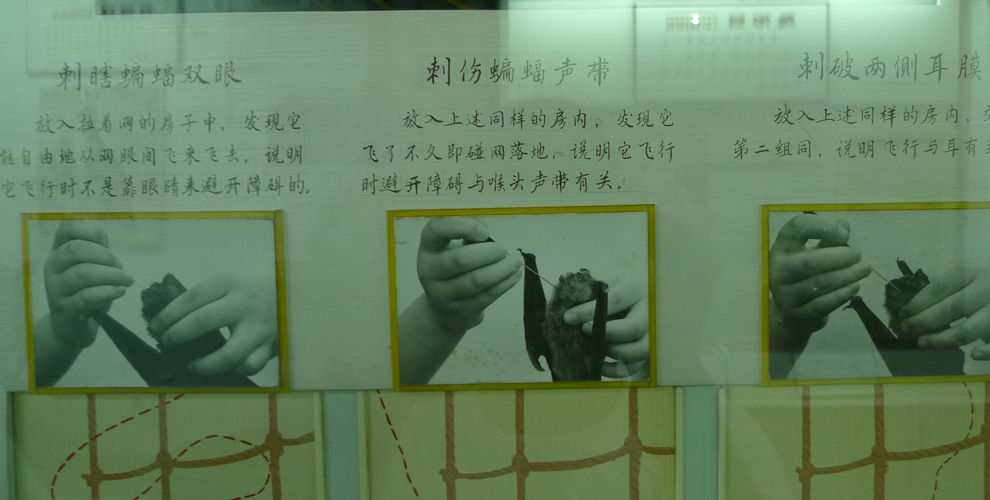 刺瞎蝙蝠双眼
放入拉着网的房子中，发现它
能自由地从网眼间飞来飞去，说明
它飞行时不是靠眼睛来避开障碍的。
刺伤蝙蝠声带
放入上述同样的房内，发现它
飞了不久即碰网落地，说明它飞行
时避开障碍与喉头声带有关。
刺破两侧耳膜
放入上述同样的房内，
第二组同，说明飞行与耳有